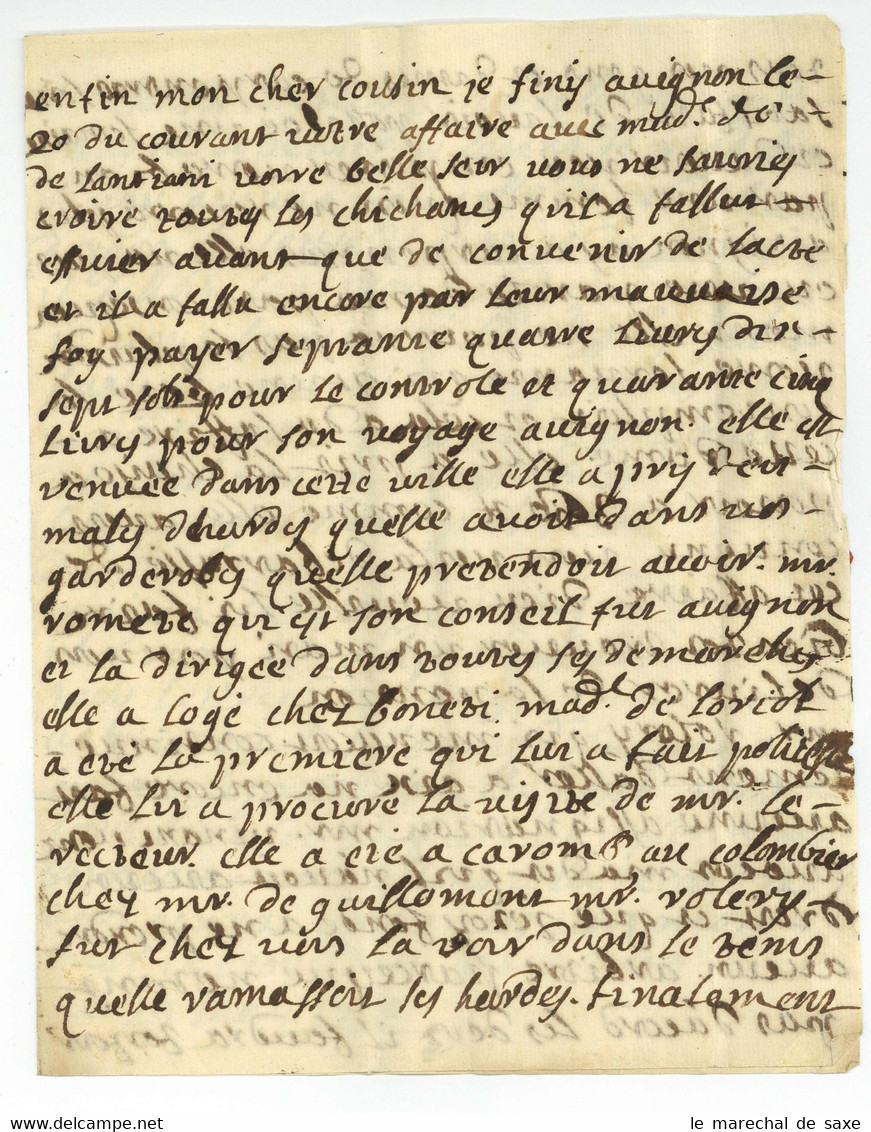 enfin mon cher cousin je finis avignon le-
20 du courant votre affaire avec mad.e de
de lantiani votre belle seur vous ne sauries
croire toutes les chichanes qu'il a fallut
essuier avant que de convenir de lacte
et il a fallu encore par leur mauvaise
foy payer septante quatre livres dix-
sept sols pour le controle et quarante cinq
livres pour son voyage avignon. elle est
venuée dans cette ville elle a pris
males dhardes quelle avoit dans vos-
garderobes quelle pretendoit avoir. mr.
romete qui est son conseil fut avignon
et la dirigée dans toutes ses demarches
elle a logé chez boneti mad.e de loriol
a eté la premiere qui lui a fait politesse
elle lui a procuré la visite de mr. le-
recteur. elle a eté a caromb, au colombier
chez mr. de guillomont mr. volery
fut chez vous la voir dans le tems
quelle ramassoit ses hardes. finalement
le marechal de saxe